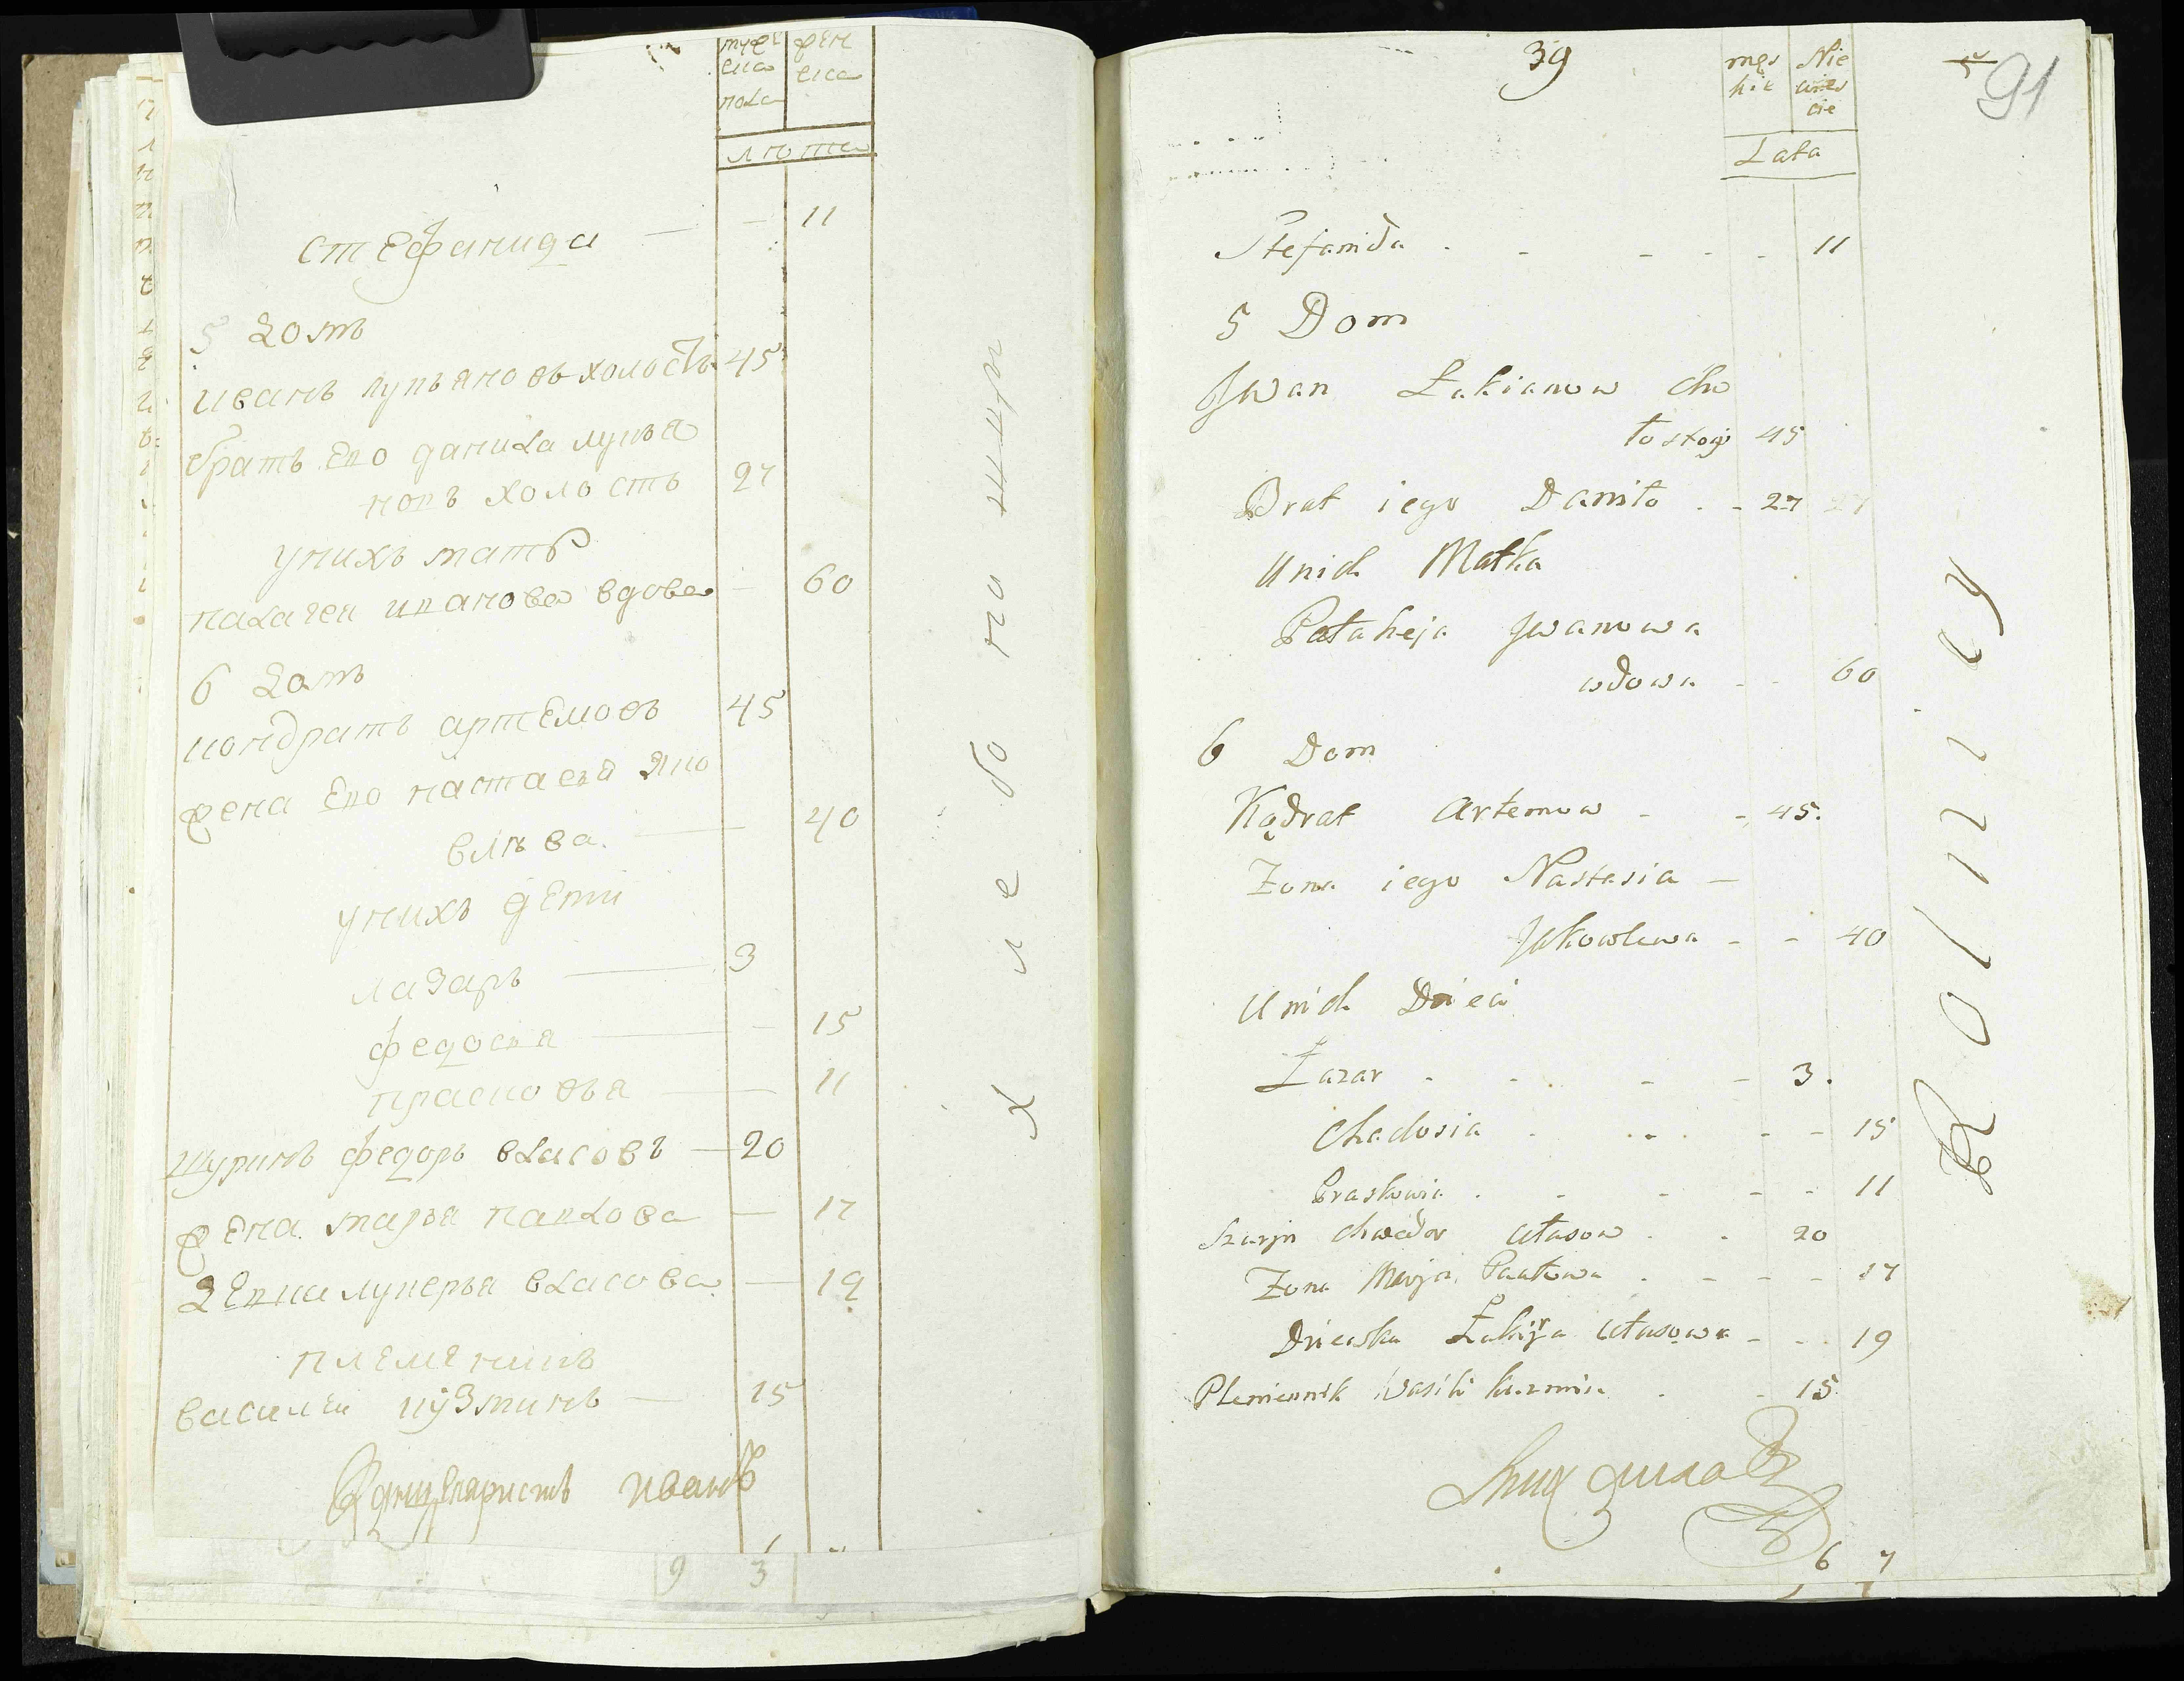 муже
ска
пола
жен
ска
лѣта
стефанида — — 11
5 домъ
иванъ лупьяновъ холостъ 45
братъ его данила лупья
новъ холость 27
унихъ мать
палагея иванова вдова — 60
6 домъ
кондратъ артемовъ 45
жена его настасья яко
влѣва — 40
унихъ дети
лазарь — 3
федосья — — 15
прасковья — — 11
шуринъ федоръ власовъ — 20
жена марья павлова — 17
девка лукерья власова — 19
племеникъ
василеи кузминъ — 15
Канцеляристъ иванъ
9 3
хлебопшцн
39
męs
kie
Nie
wies
cie
Lata
91
Stefanida . - - - - 11
5 Dom
Jwan Łukianow cho
łostoy 45
Brat iego Daniło . - 27 27
Unich Matka
Pałaheja Jwanowa
wdowa - - 60
6 Dom
Kądrat Artemow - - 45.
Zona iego Nastasia —
Jakowlewa - - 40
Unich Dzieci
Łazar - - . - - 3.
Chadosia . . . . - - 15
Praskowia . - - - - 11
Szuryn Chwedor Własow . . 20
Zona Marja Pawłowa . - - - 17
Dziewka Łukirja Własowa - - . 19
Plemiennik Wasili Kuzmin . - 15
6 7